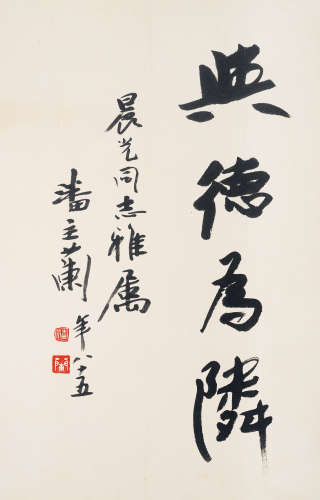 與德為隣
晨光同志雅属
潘主蘭年八十五